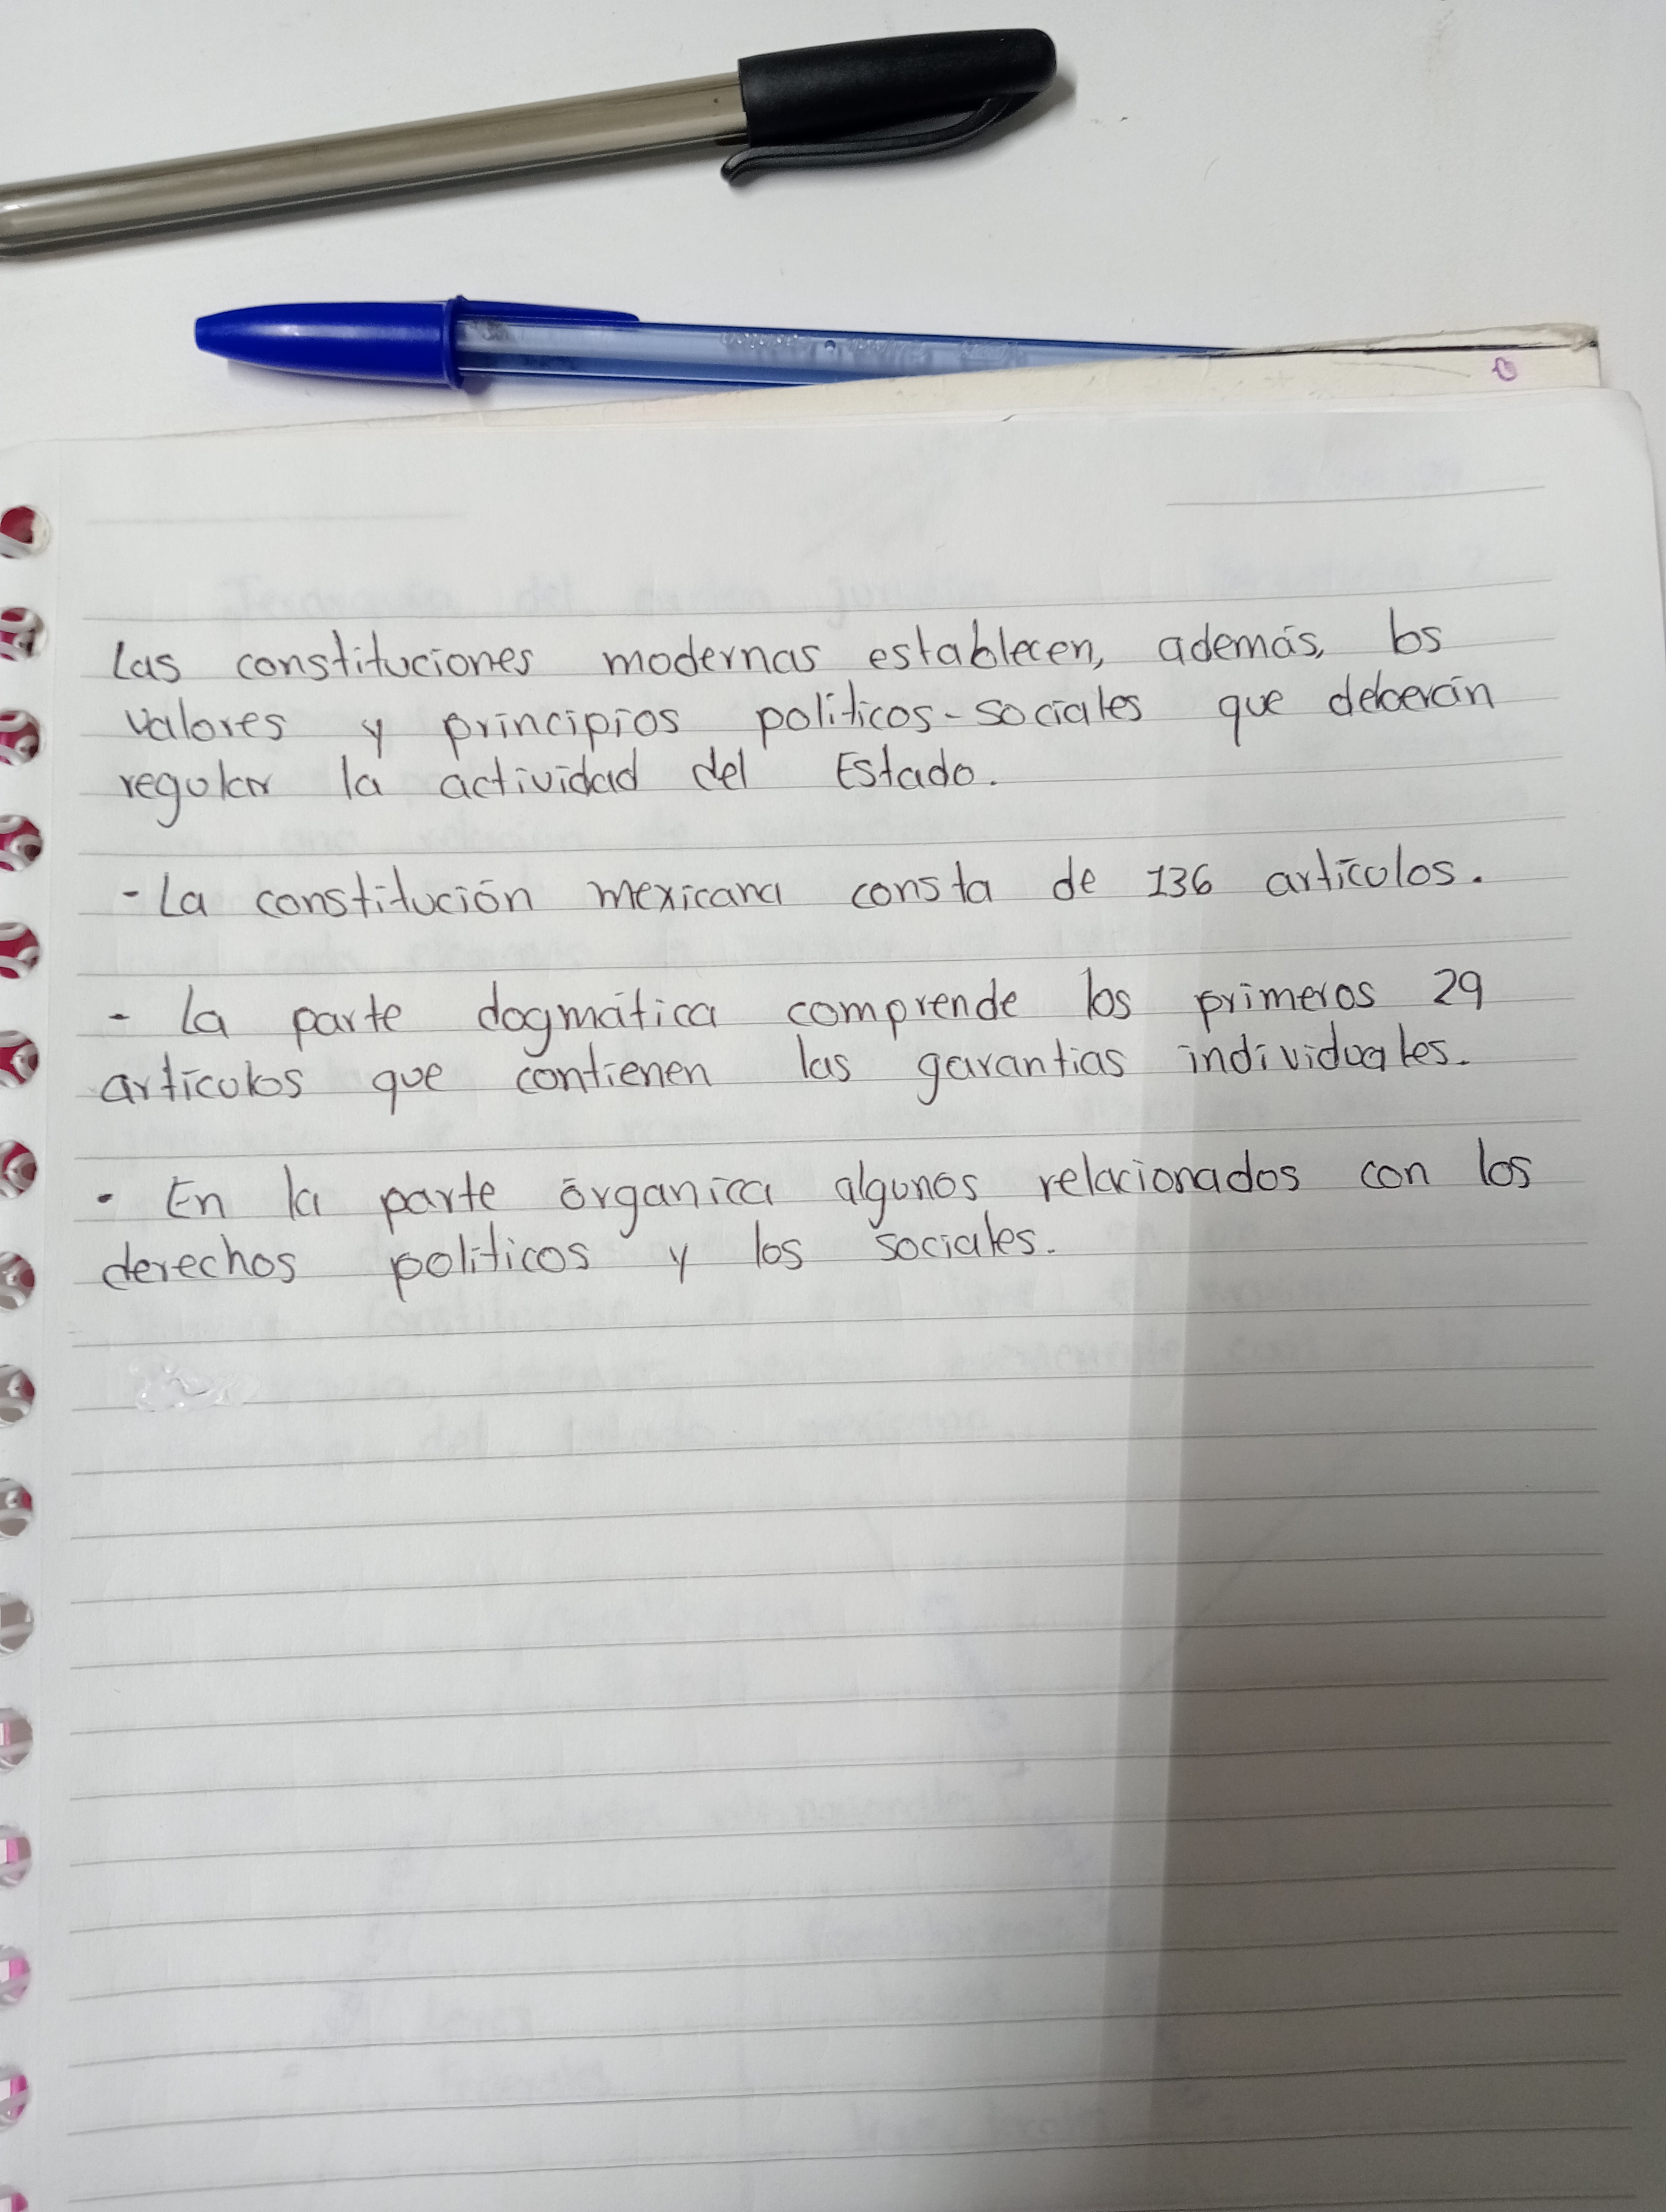 Las constituciones modernas establecen, además, los
valores y principios políticos-sociales que deberán
regular la actividad del Estado.
- La constitución mexicana consta de 136 artículos.
- La parte dogmática comprende los primeros 29
artículos que contienen las garantías individuales.
· En la parte órganica algunos relacionados con los
derechos políticos y los sociales.